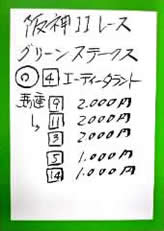 阪神11レース
グリーンステークス
◎ 4 エーティータラント
馬連 9 2.000円
↳ 11 2.000円
3 2.000円
5 1.000円
14 1.000円